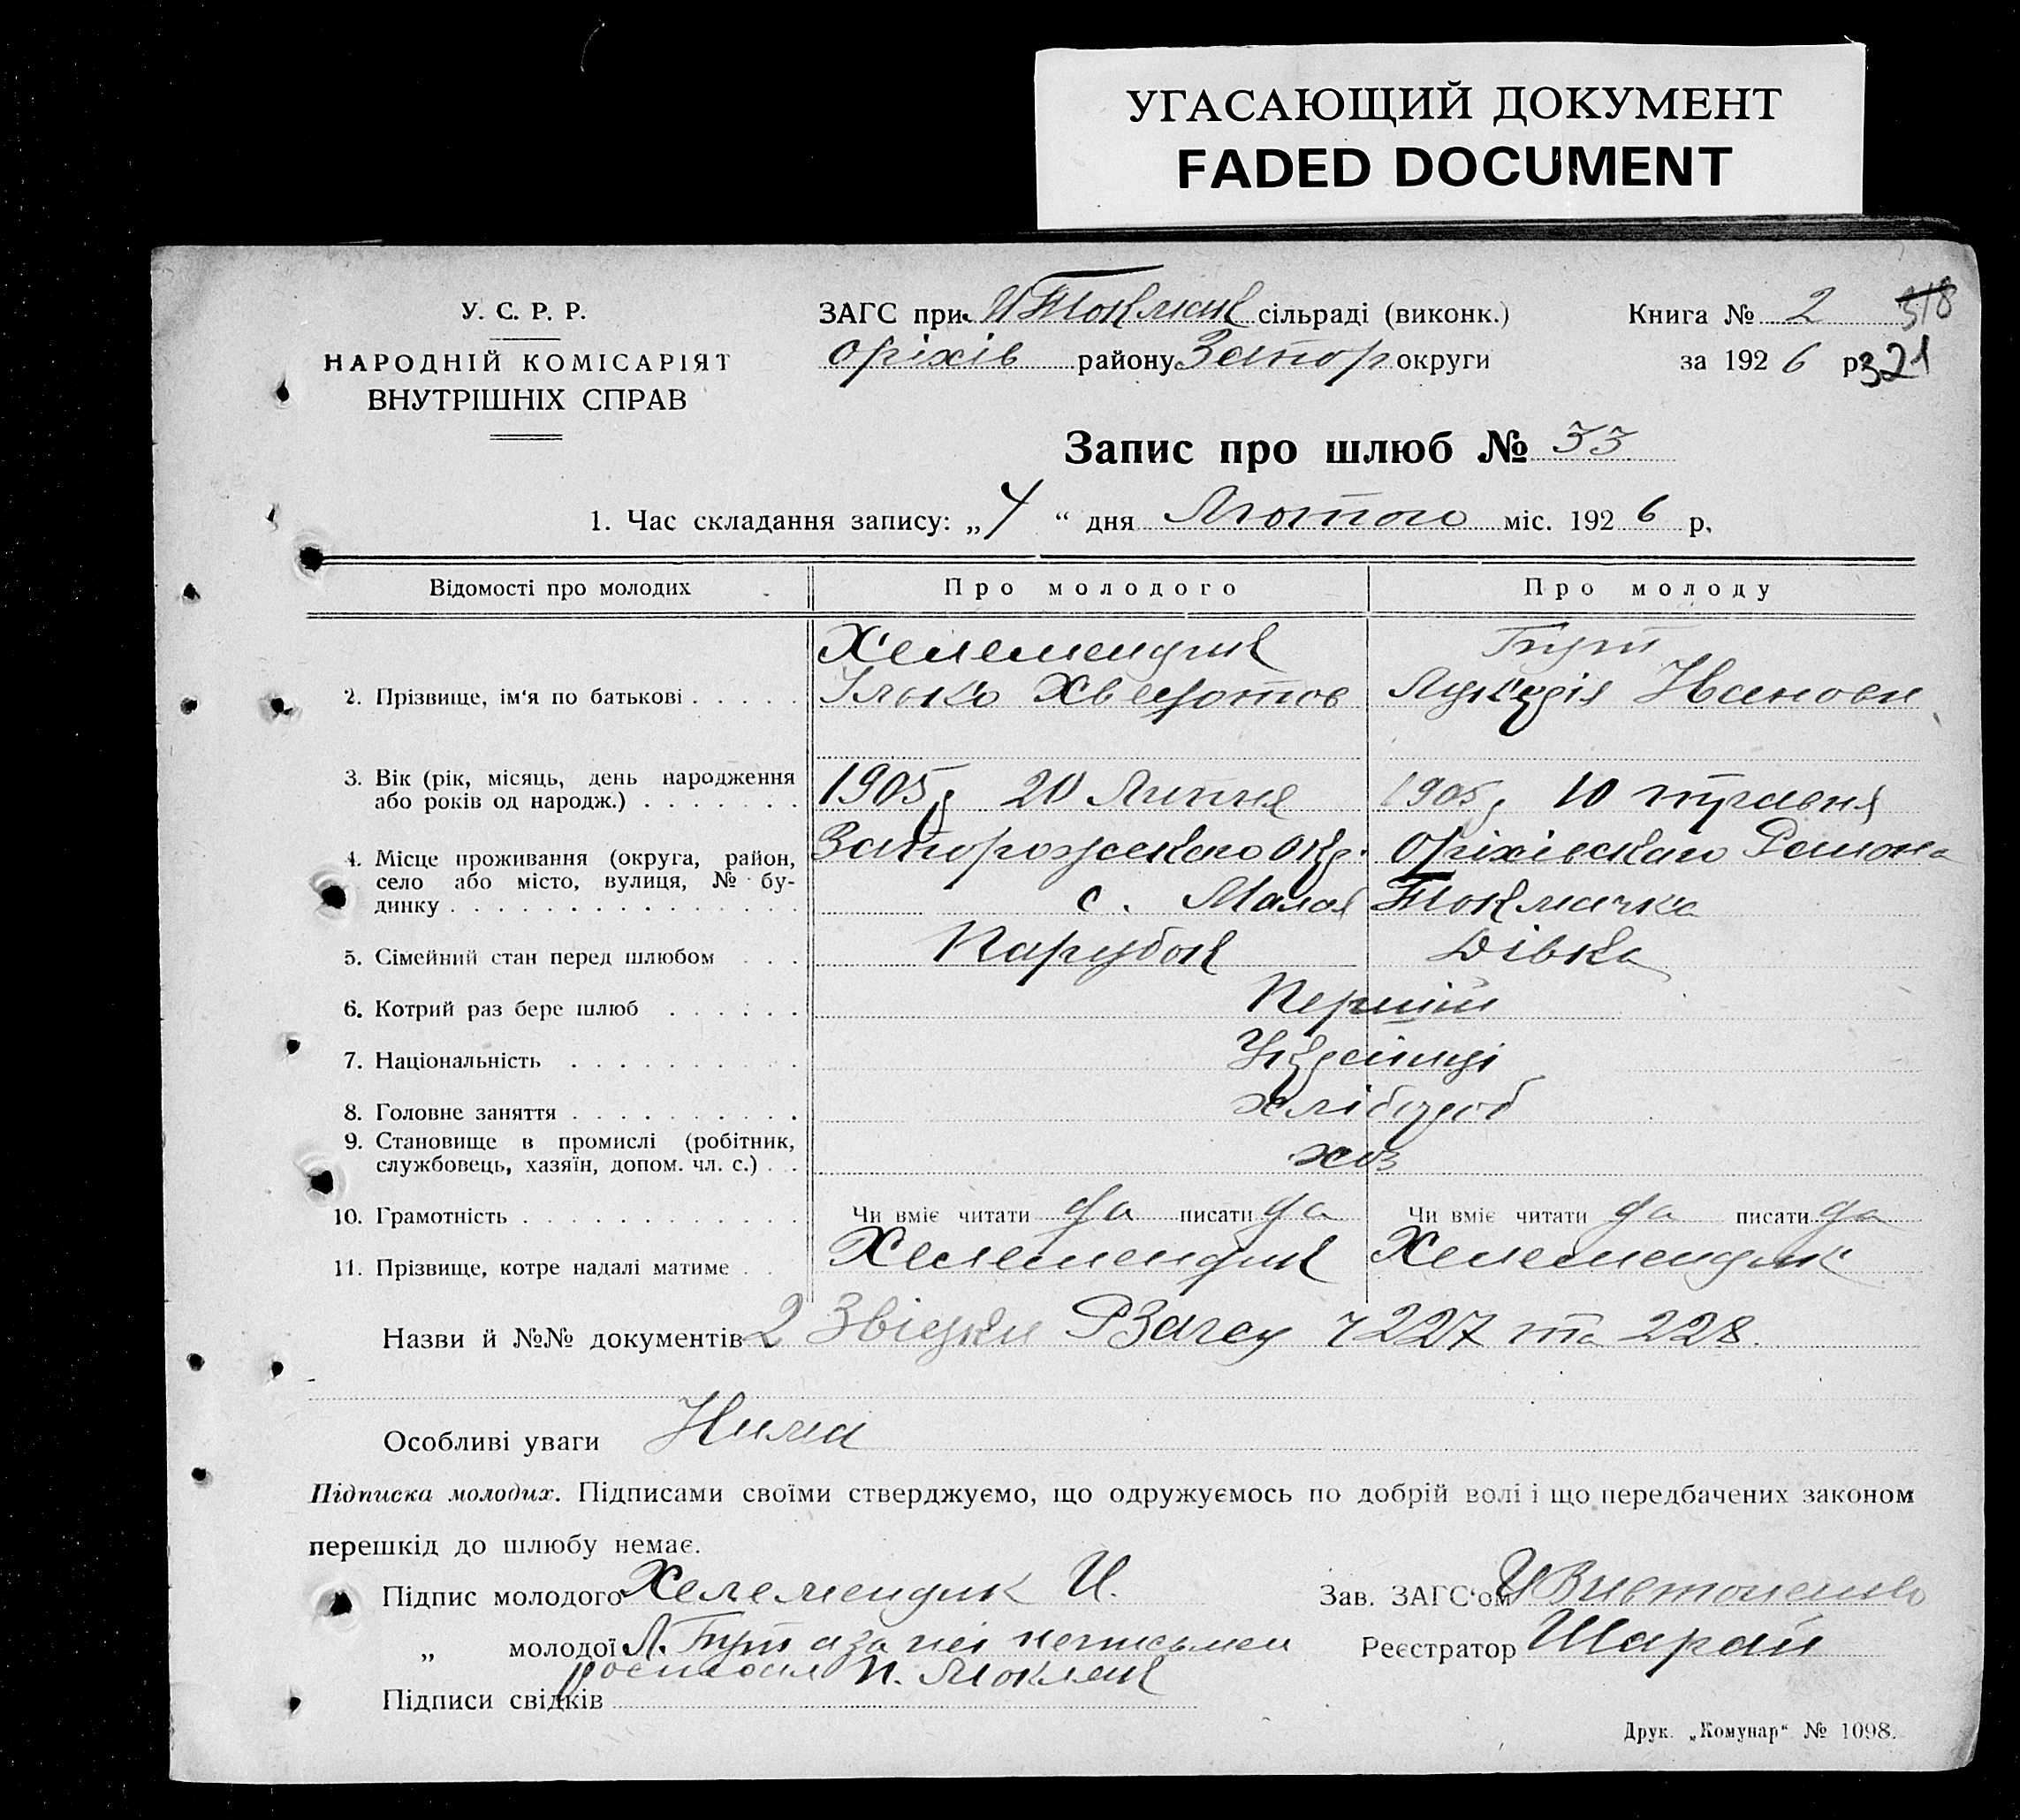 УГАСАЮЩИЙ ДОКУМЕНТ
FADED DOCUMENT
У. С. Р. Р.
НАРОДНІЙ КОМІСАРІЯТ
ВНУТРІШНІХ СПРАВ
ЗАГС при Токмак сільраді (виконк.)
оріхів району Запор округи
Книга № 2 318
за 1926 р. 321
Запис про шлюб № 33
1. Час складання запису: „4“ дня Лютого міс. 1926 р.
Відомості про молодих Про молодого Про молоду
Хелемендик Бут
2. Прізвище, ім'я по батькові Ілько Хведотов Лукерія Иванови
3. Вік (рік, місяць, день народження
або років од народж.) 1905 20 Липня 1905 10 травня
4. Місце проживання (округа, район, Запорожського Окр. Оріхівського Района
село або місто, вулиця, № бу-
динку с. Малая Токмачка
5. Сімейний стан перед шлюбом Парубок Дівка
6. Котрий раз бере шлюб Перший
7. Національність Українці
8. Головне заняття хлібороб
9. Становище в промислі (робітник,
службовець, хазяїн, допом. чл. с.) хоз
10. Грамотність Чи вміє читати да писати да Чи вміє читати да писати да
11. Прізвище, котре надалі матиме Хелемендик Хелемендик
Назви й №№ документів 2 Звідки РЗагсу ч 227 та 228.
Особливі уваги Нима
Підписка молодих. Підписами своїми стверджуємо, що одружуємось по добрій волі і що передбачених законом
перешкід до шлюбу немає.
Підпис молодого Хелемендик И.
Зав. ЗАГС'ом
„ молодої Л. Бут а за неі неписьмен
Реєстратор Шарай
росписал
Підписи свідків
Друк. „Комунар“ № 1098.